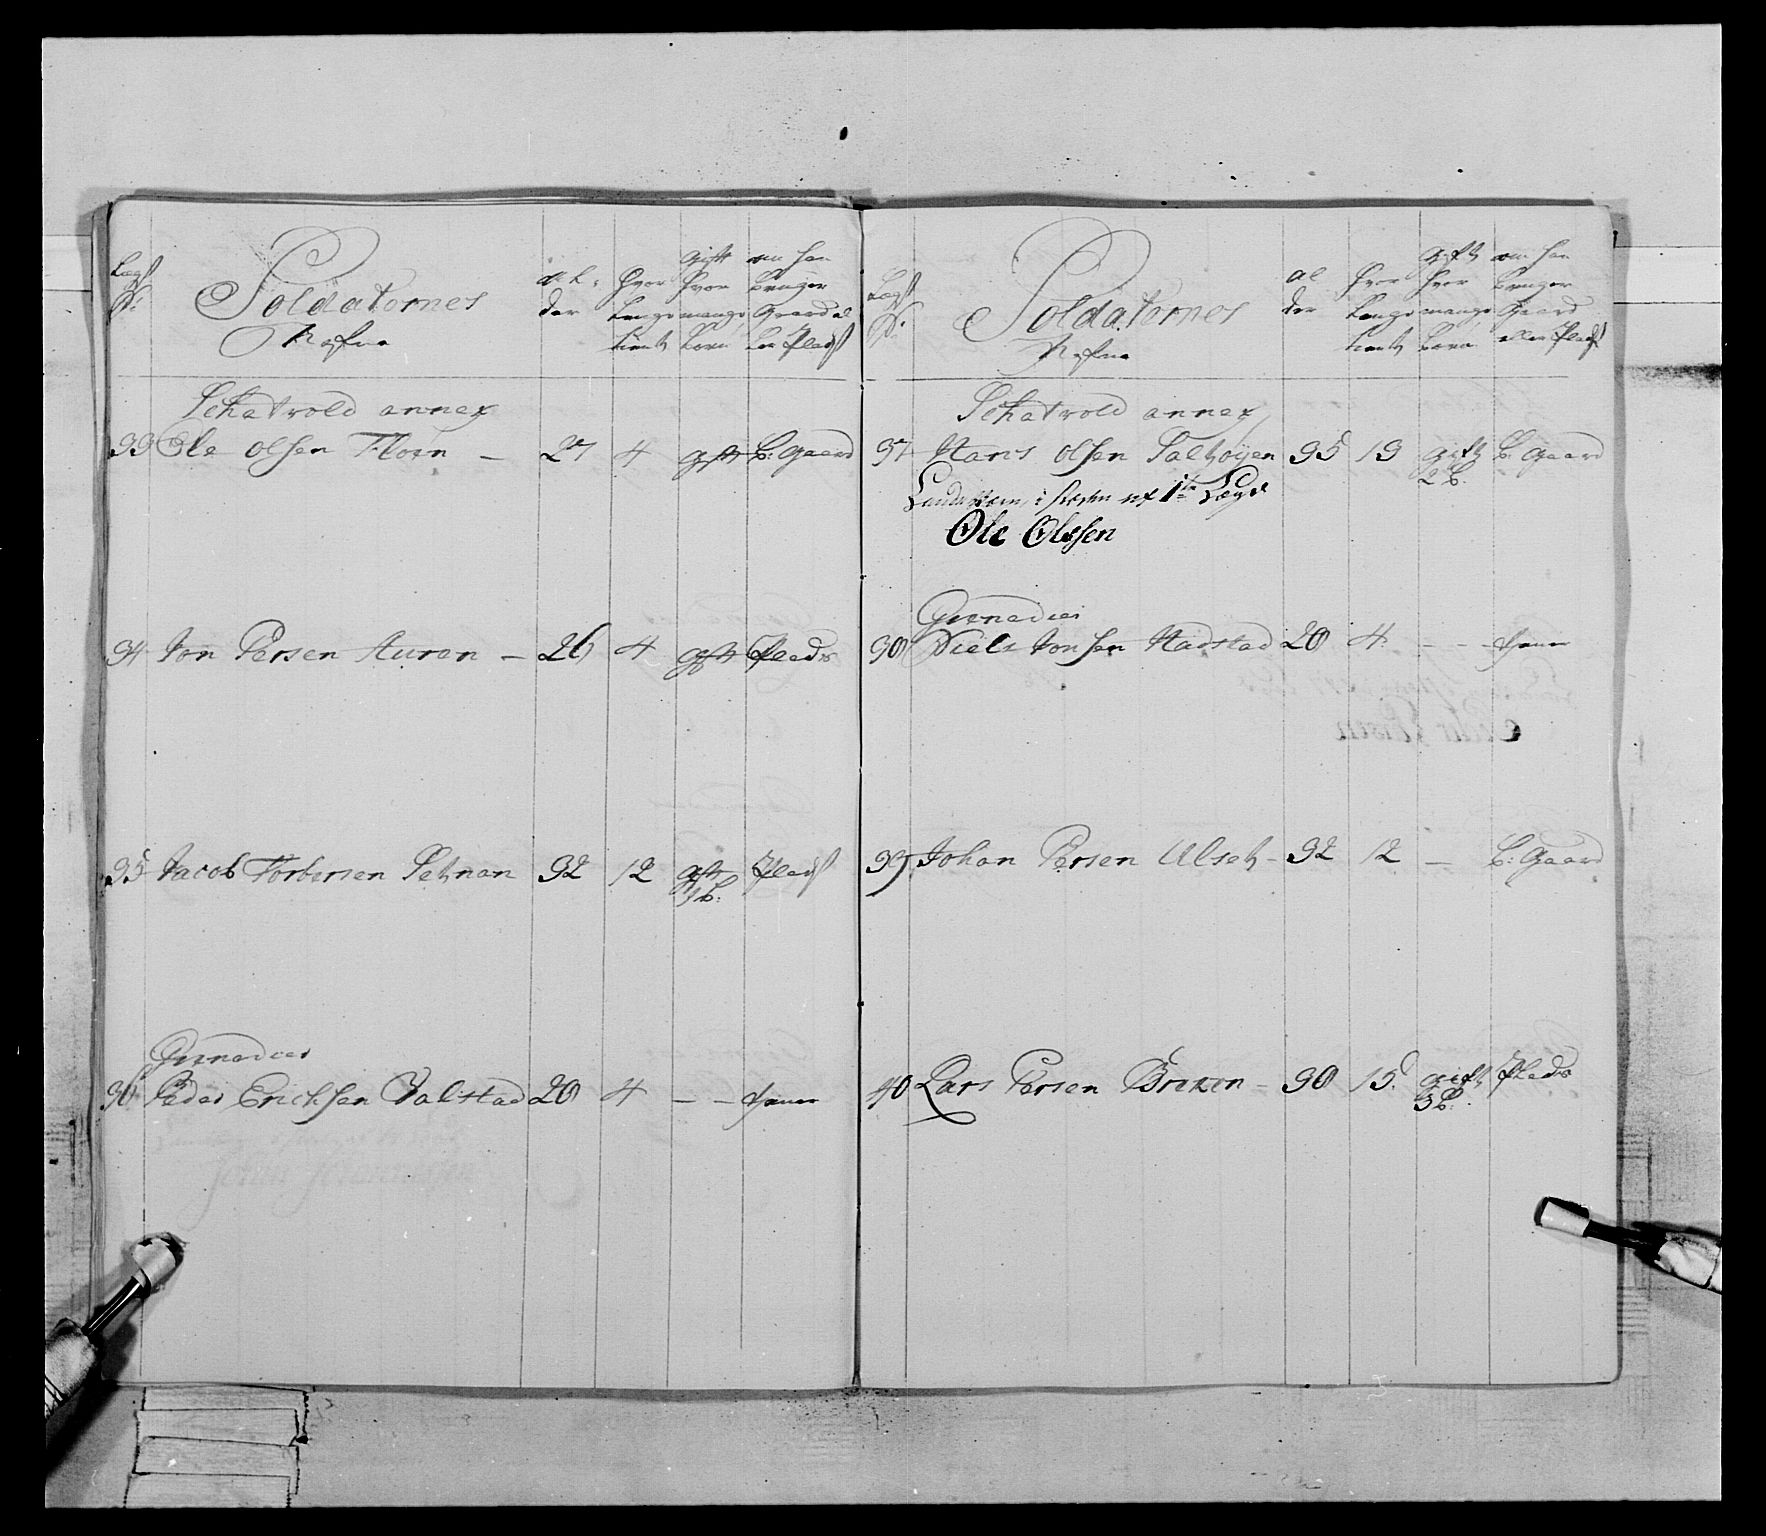 Lægd
No:
Soldaternes
Nafne
al-
der
hvor
Lenge
tient
gift
hvor
mange
Børn
om han
bruger
Gaard el
ler Pladtz
Schatvold annex
33 Ole Olsen Floen - 27 4 gift b: Gaard
34 Jon Persen Auren - 26 4 gift Plads
35 Jacob Torbersen Setnan 32 12 gift Pladtz
3 b:
Grenadeer
36 Peder Erichsen Valstad 20 4 - -
Lægd
No.
Soldaternes
Nafne
al
der
hvor
Lenge
tient
gift
hvor
mange
Børn
om han
bruger
Gaard
eller Pladtz
Schatvold annex
37 Hans Olsen Salthøyen 35 13 gift b: Gaard
2 b.
Landværn i steden af 1te Lægd
Ole Olssen
Grenadeer
38 Niels Jonsen Hadstad 20 4 - - -
39 Johan Persen Ulset - 32 12 - b: Gaard
40 Lars Persen Breken - 30 15 gift Plads
3 b: